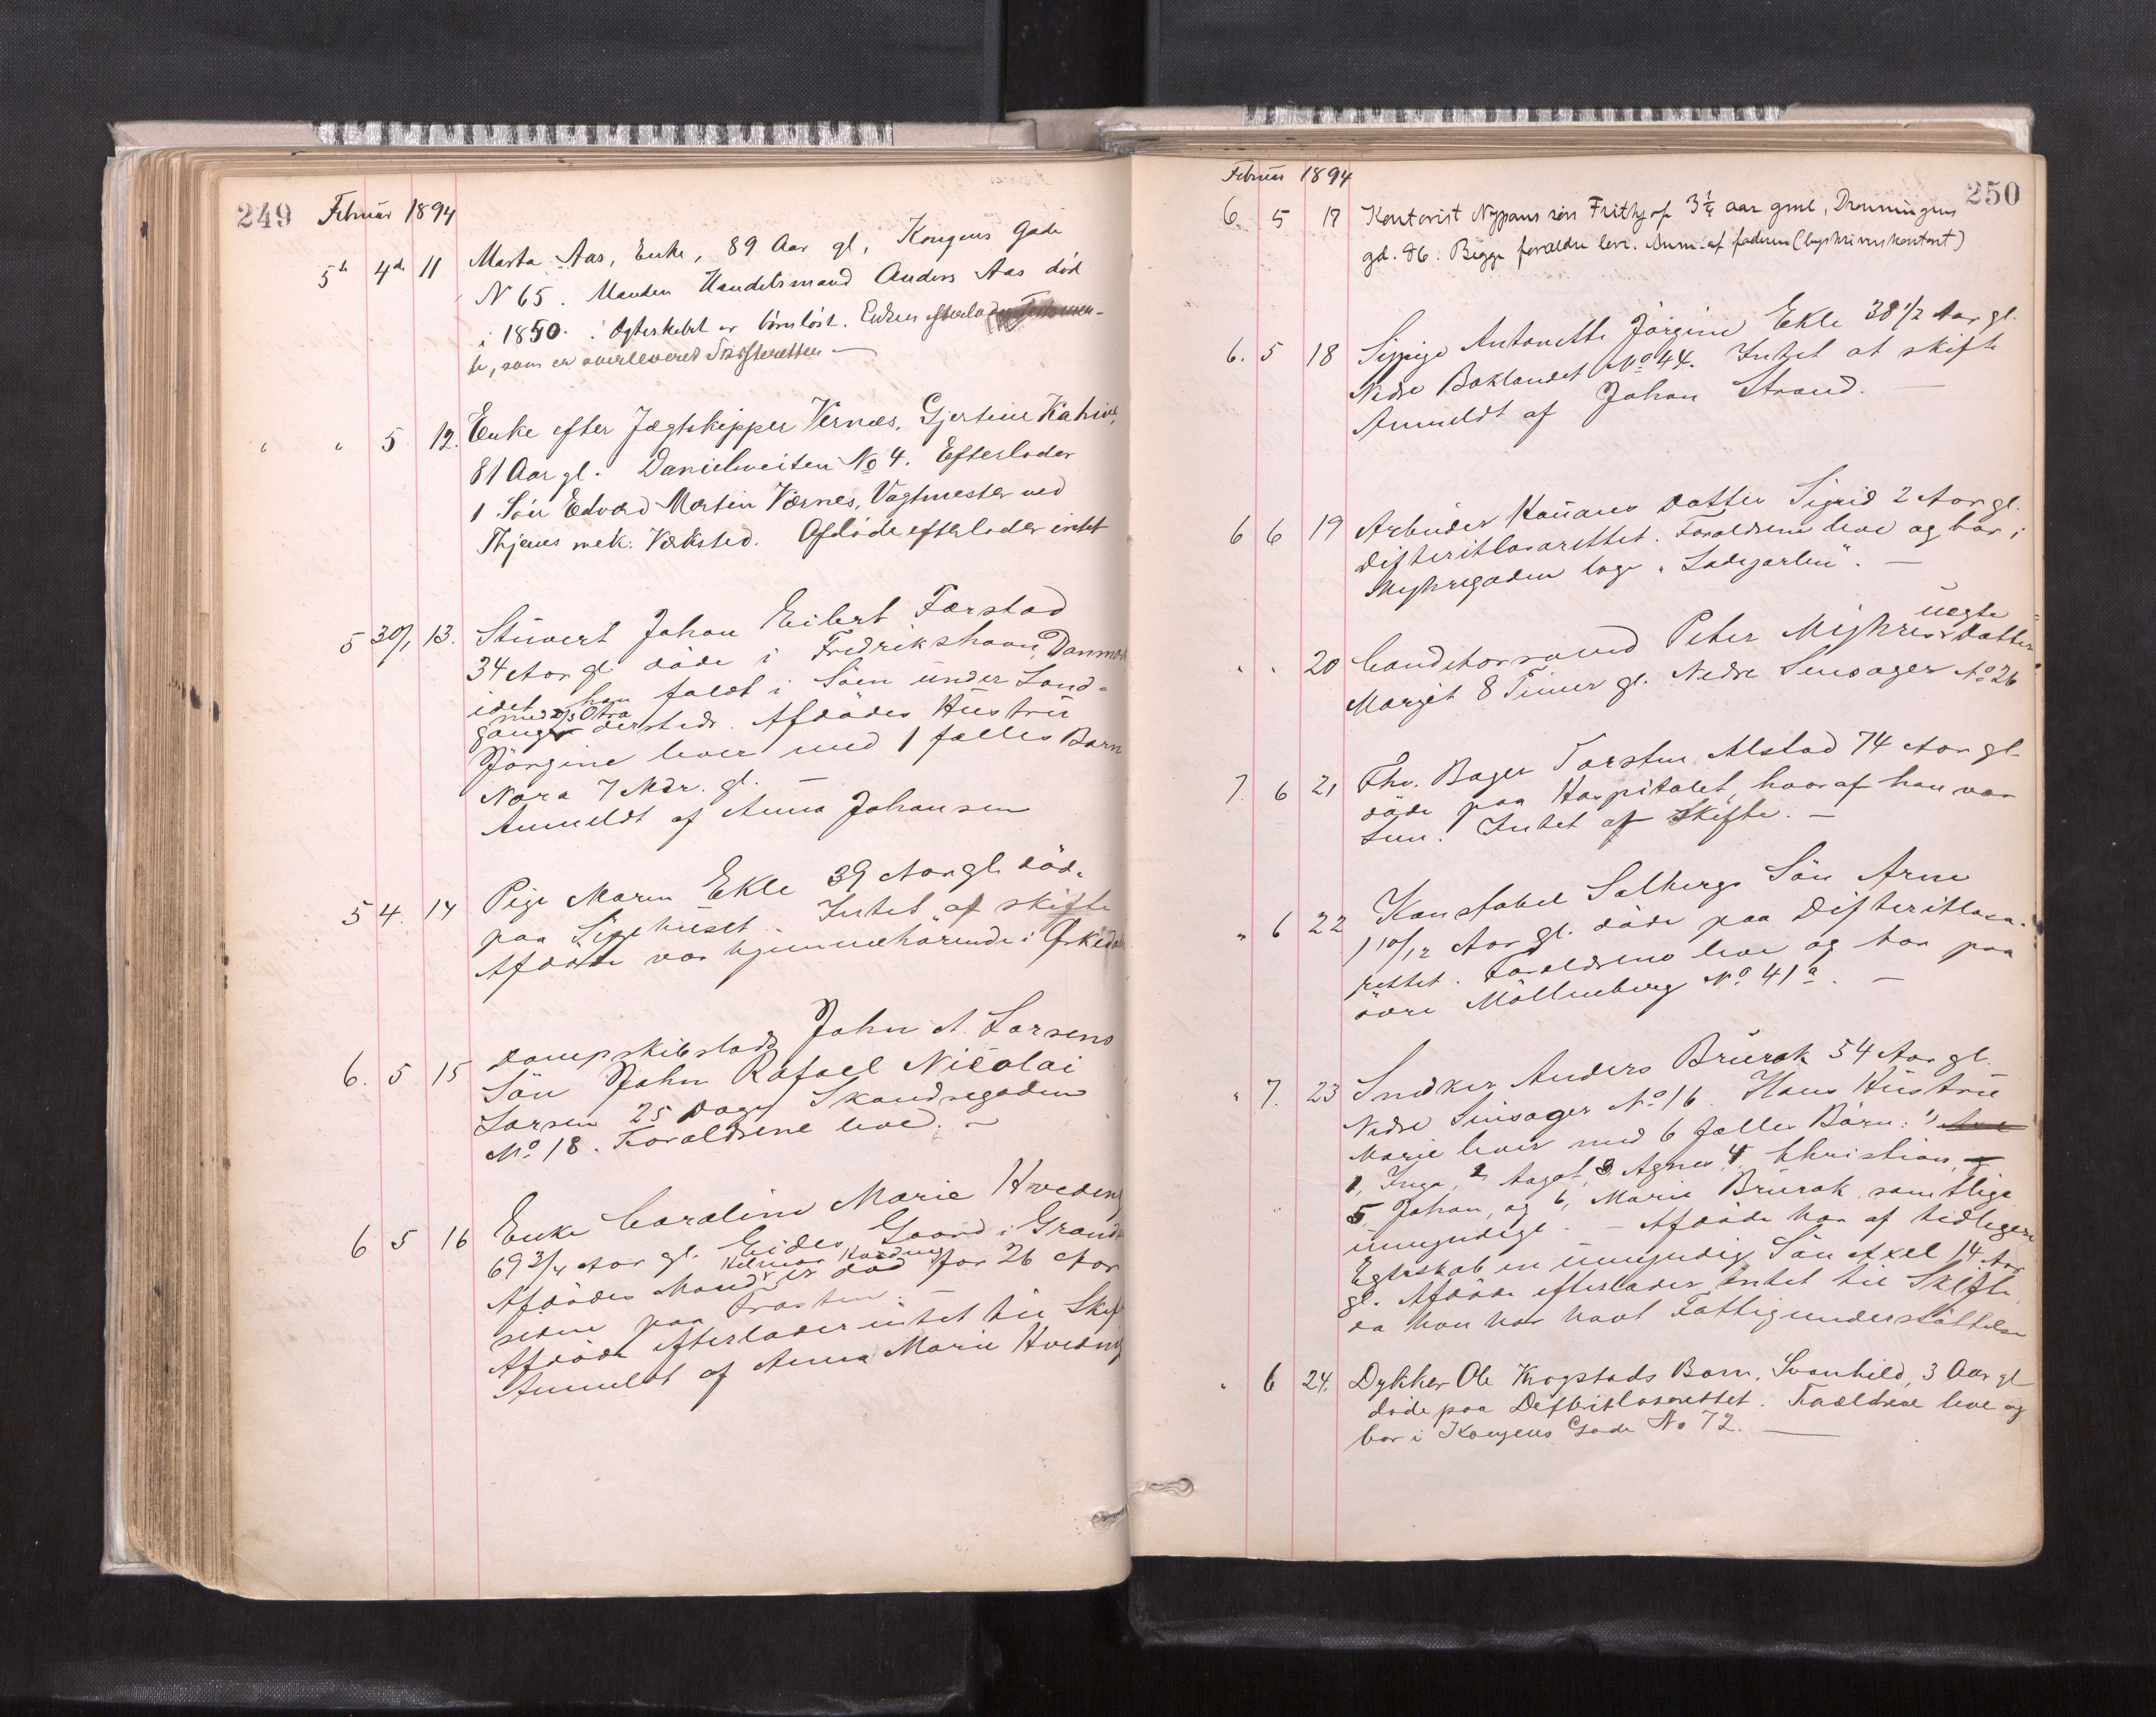 249 Februar 1894
5te 4de 11 Marta Aas, Enke, 89 Aar gl, Kongens Gade
N 65. Manden Handelsmand Anders Aas död
i 1850. Ægteskabet er börnlöst. Enken efterlader Testamen-
te, som er overleveret Skifteretten —
" " 5 12. Enke efter Jægtskipper Vernes, Gjertine Katrine,
81 Aar gl. Danielsveiten No 4. Efterlader
1 Sön Edvard Martin Værnes, Vagtmester ved
Thjems mek. Værksted. Afdöde efterlader intet
5 30/1 13. Stuvert Johan Eilert Færstad
34 Aar gl döde i Fredrikshavn, Danmark
idet han faldt i Söen under Land-
med D/S Otra
gang dersteds. Afdödes Hustru
Jörgine lever med 1 fælles Barn
Nora 7 Mdr. gl. —
Anmeldt af Anna Johansen
5 4. 14 Pige Maren Ekle 39 Aar gl. död.
paa Sygehuset. Intet at skifte
Afdöde var hjemmehörende i Ørkedal
6. 5 15 Dampskibslods John A. Larsens
Sön John Rafael Nicolai
Larsen 25 Dage Strandvegaden
No 18. Forældrene leve. —
6 5 16 Enke Caroline Marie Hveding
69 3/4 Aar gl. Eides Gaard i Granden
Afdödes Mand er död for 26 Aar
siden paa Frosten. —
Afdöde efterlader intet til Skifte
Anmeldt af Anna Marie Hveding
Februar 1894 250
6. 5 17 Kontorist Nypans sön Frithjof 3 1/4 aar gml, Dronningens
gd. 86. Begge forældre lever. Anm. af faderen (bogskriverkontort)
6. 5 18 Sypige Antonette Jörgine Ekle 38 1/2 Aar gl.
Nedre Baklandet No 44. Intet at skifte
Anmeldt af Johan Strand. —
6 6 19 Arbeider Hanans Datter Sigrid 2 Aar gl.
Difteritlasarettet. Forældrene leve og bor i
Mejhregaden lage "Ladejarlen". —
uægte
" " 20 Conditorsvend Peter Mejhres Datter
Margit 8 Timer gl. Nedre Singsager No 26
7. 6 21 Fhv. Bager Torsten Alstad 74 Aar gl.
döde paa Hospitalet, hvoraf han var
Lem. Intet at skifte. —
" 6 22 Konstabel Solbergs Sön Arne
1 10/12 Aar gl. döde paa Difteritlasa-
rettet. Forældrene leve og bor paa
övre Möllenberg No 41a. —
" 7. 23 Snedker Anders Brurok 54 Aar gl.
Nedre Singsager No 16. Hans Hustru
Marie lever med 6 fælles Börn:
1, Inga, 2, Aagot, 3, Agnes, 4, Christian,
5, Johan, og 6, Marie Brurok, samtlige
umyndige. — Afdöde har af tidligere
Egteskab en umyndig Sön Axel 14 Aar
gl. Afdöde efterlader intet til Skifte
da han har havt Fattigunderstöttelse
" 6 24. Dykker Ole Krogstads Barn, Svanhild, 3 Aar gl
döde paa Difteritlasarettet. Forældrene leve og
bor i Kongens Gade No 72. —